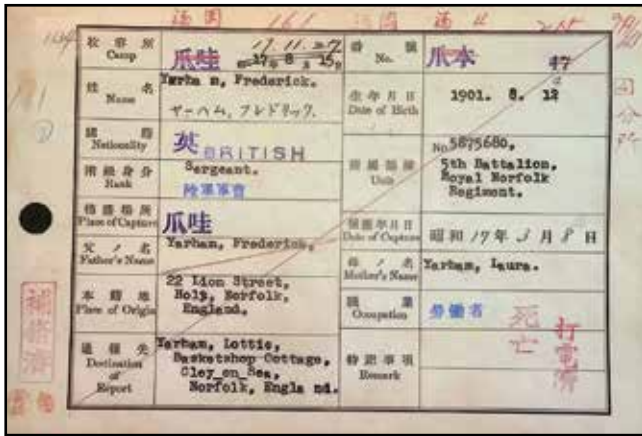 收容所
Camp
爪哇
17.11.27
昭17年8月15日
番號
No.
爪本
47
姓名
Name
Yarha m, Frederick.
ヤーハム, フレドリック.
生年月日
Date of Birth
1901. 8. 12
國籍
Nationality
英 BRITISH
階級身分
Rank
Sergeant.
陸軍軍曹
所屬部隊
Unit
No.5875680,
5th Battalion,
Royal Norfolk
Regiment.
捕獲場所
Place of Capture
爪哇
捕獲年月日
Date of Capture
昭和 17 年 3 月 8 日
父ノ名
Father's Name
Yarham, Frederick.
母ノ名
Mother's Name
Yarham, Laura.
本籍地
Place of Origin
22 Lion Street,
Holt, Norfolk,
England.
職業
Occupation
勞働者
通報先
Destination
of
Report
Yarham, Lottie,
Basketshop Cottage,
Cley_on_Sea,
Norfolk, Engla nd.
特記事項
Remark
死亡
打電濟